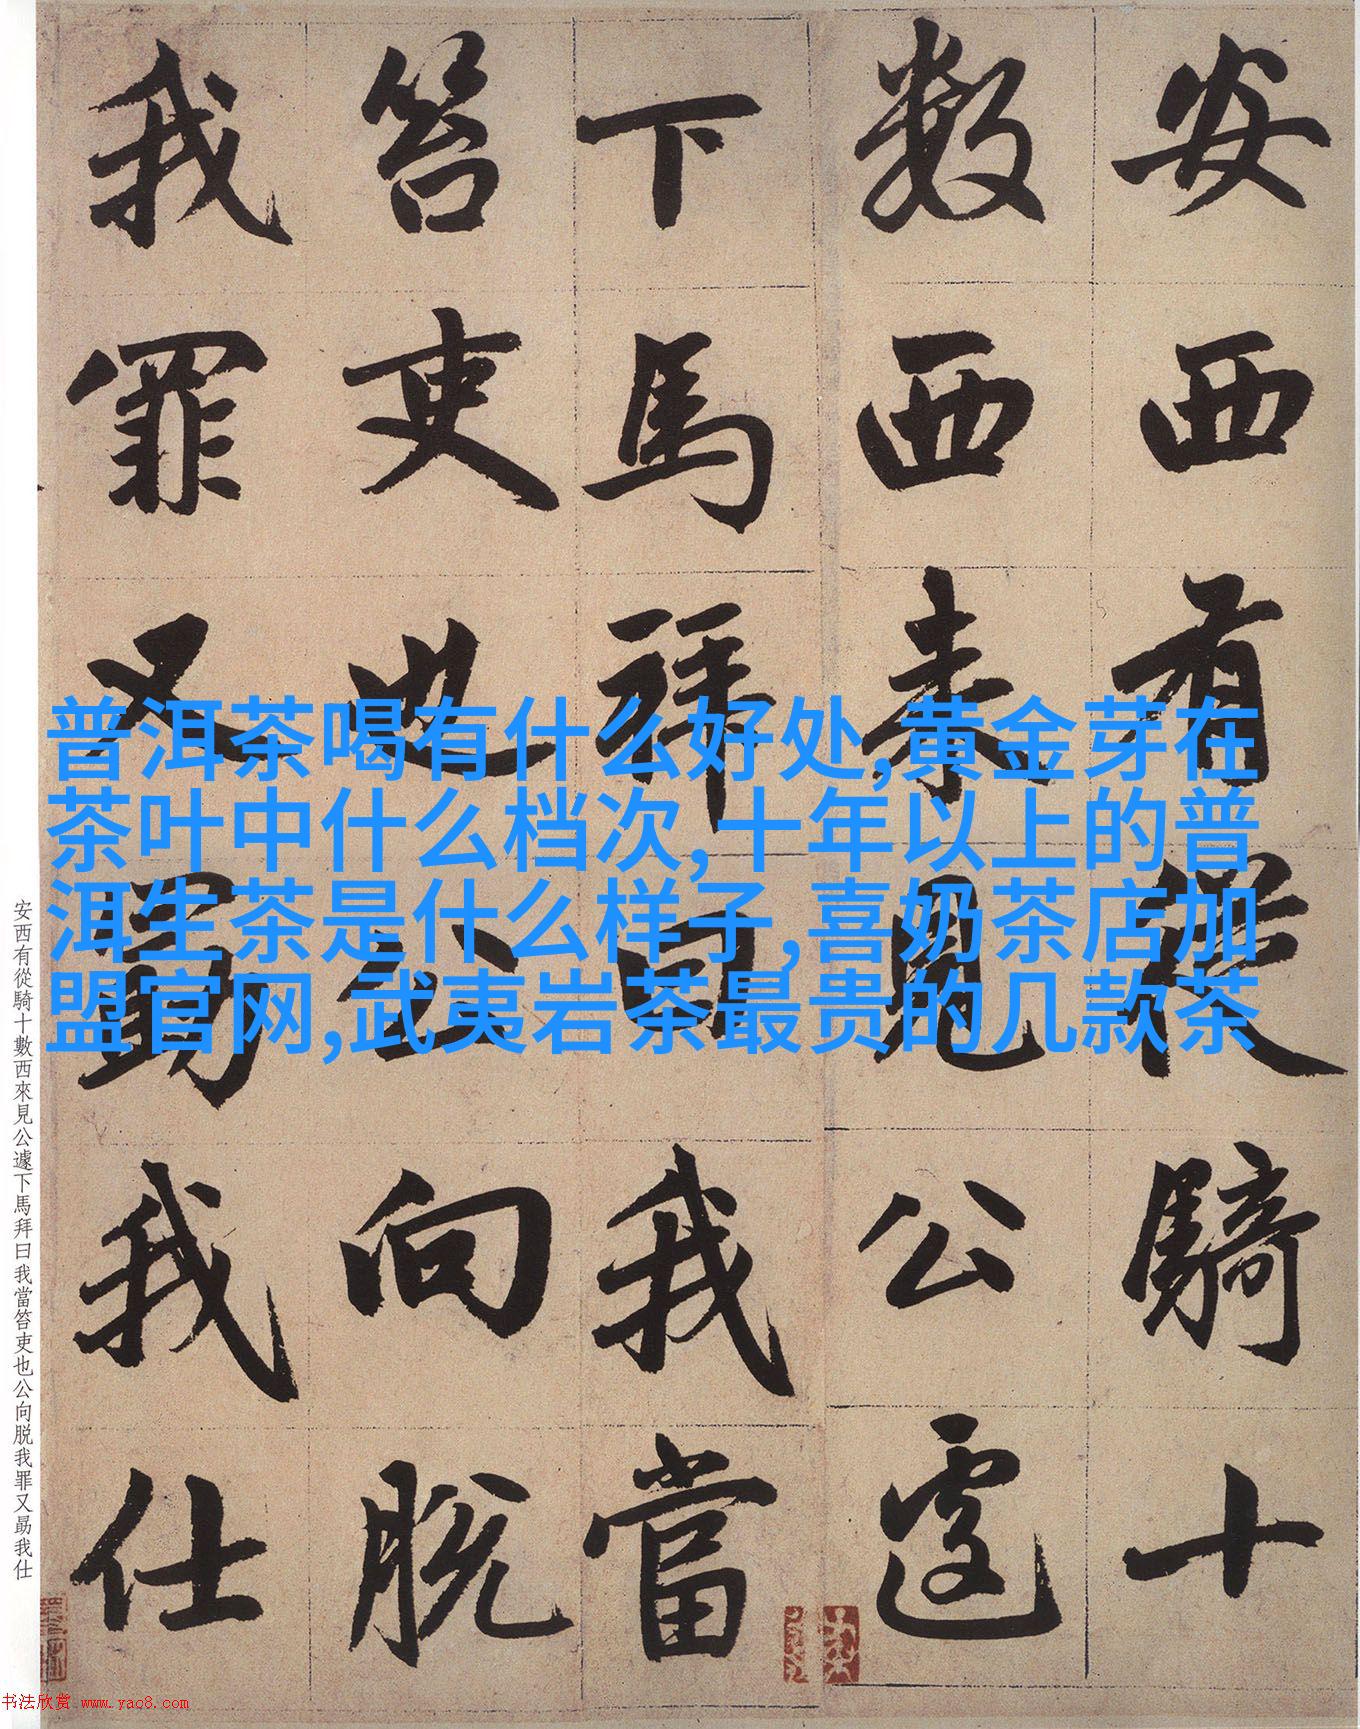 安西有從騎十
數西来見公遽
下馬拜曰我當
笞吏也公向脱
我罪又勗我仕
普洱茶喝有什么好处,黄金芽在
茶叶中什么档次,十年以上的普
洱生茶是什么样子,喜奶茶店加
盟官网,武夷岩茶最贵的几款茶
安西有從騎十數西來見公遽下馬拜曰我當笞吏也公向脱我罪又勗我仕
书法欣赏 www.yac8.com